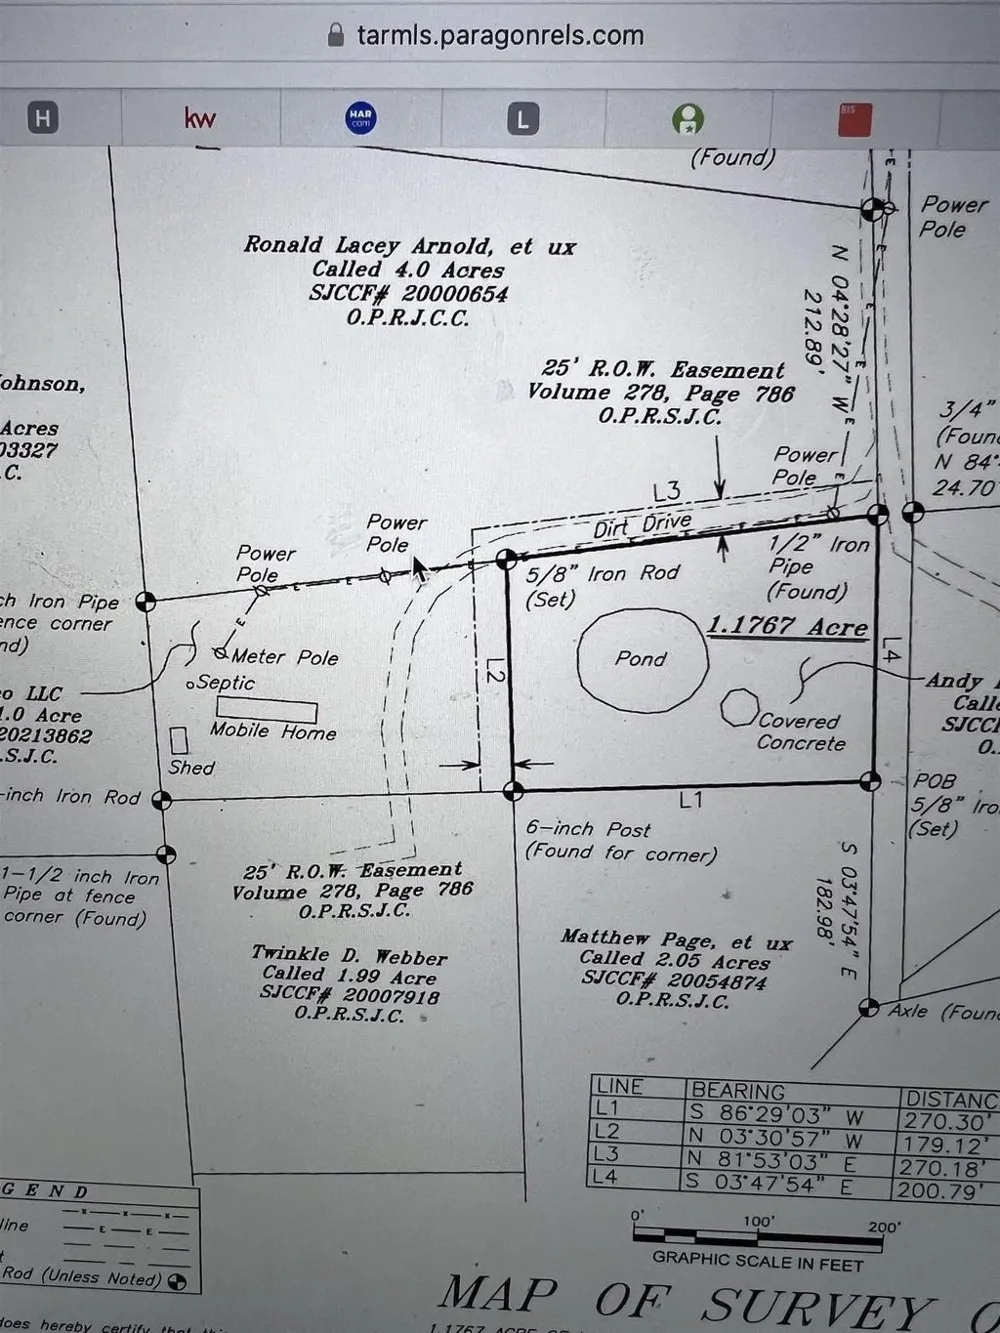 tarmls.paragonrels.com
H
kw
HAR
com
L
BIS
(Found)
Power
Pole
E
Ronald Lacey Arnold, et ux
Called 4.0 Acres
SJCCF# 20000654
O.P.R.J.C.C.
N 04°28'27" W
212.89'
25' R.O.W. Easement
Volume 278, Page 786
O.P.R.S.J.C.
ohnson,
Acres
03327
.C.
3/4"
(Foun
N 84°
24.70'
Power
Pole
L3
Dirt Drive
Power
Pole
Power
Pole
1/2" Iron
Pipe
(Found)
5/8" Iron Rod
(Set)
ch Iron Pipe
ence corner
nd)
1.1767 Acre
L4
L2
Pond
Meter Pole
Septic
Mobile Home
Shed
o LLC
1.0 Acre
20213862
.S.J.C.
Covered
Concrete
Andy
Calle
SJCCF
O.
-inch Iron Rod
L1
POB
5/8" Iro
(Set)
6-inch Post
(Found for corner)
1-1/2 inch Iron
Pipe at fence
corner (Found)
25' R.O.W. Easement
Volume 278, Page 786
O.P.R.S.J.C.
S 03°47'54" E
182.98'
Twinkle D. Webber
Called 1.99 Acre
SJCCF# 20007918
O.P.R.S.J.C.
Matthew Page, et ux
Called 2.05 Acres
SJCCF# 20054874
O.P.R.S.J.C.
Axle (Foun
LINE BEARING DISTANC
L1 S 86°29'03" W 270.30'
L2 N 03°30'57" W 179.12'
L3 N 81°53'03" E 270.18'
L4 S 03°47'54" E 200.79'
GEND
line
Rod (Unless Noted)
0' 100' 200'
GRAPHIC SCALE IN FEET
MAP OF SURVEY O
does hereby certify that